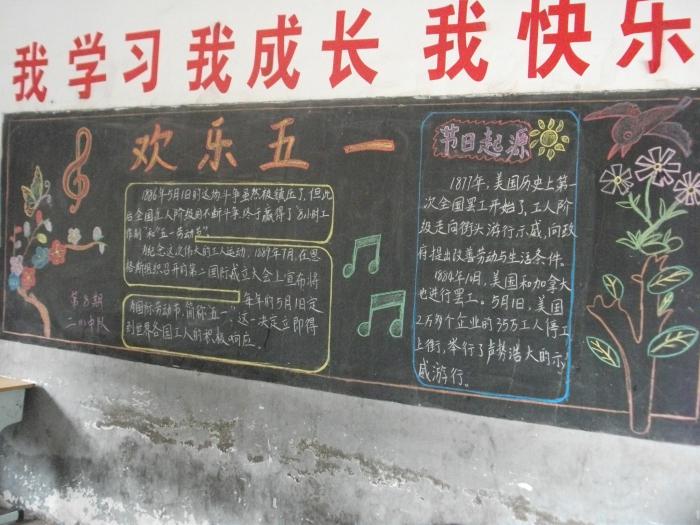 我学习 我成长 我快乐
欢乐五一
1886年5月1日的这场斗争虽然被镇压了，但此
后全国工人阶级用不断斗争，终于赢得了"8小时工
作制"和"五一劳动节"。
为纪念这次伟大的工人运动，1889年7月，在恩
格斯组织召开的第二国际成立大会上宣布将
每年的5月1日定
为国际劳动节，简称五一，这一决定立即得
到世界各国工人的积极响应。
第8期
二(1)中队
节日起源
1877年，美国历史上第一
次全国罢工开始了，工人阶
级走向街头游行示威，向政
府提出改善劳动与生活条件。
1884年10月，美国和加拿大
也进行罢工。5月1日，美国
2万多个企业的35万工人停工
上街，举行了声势浩大的示
威游行。